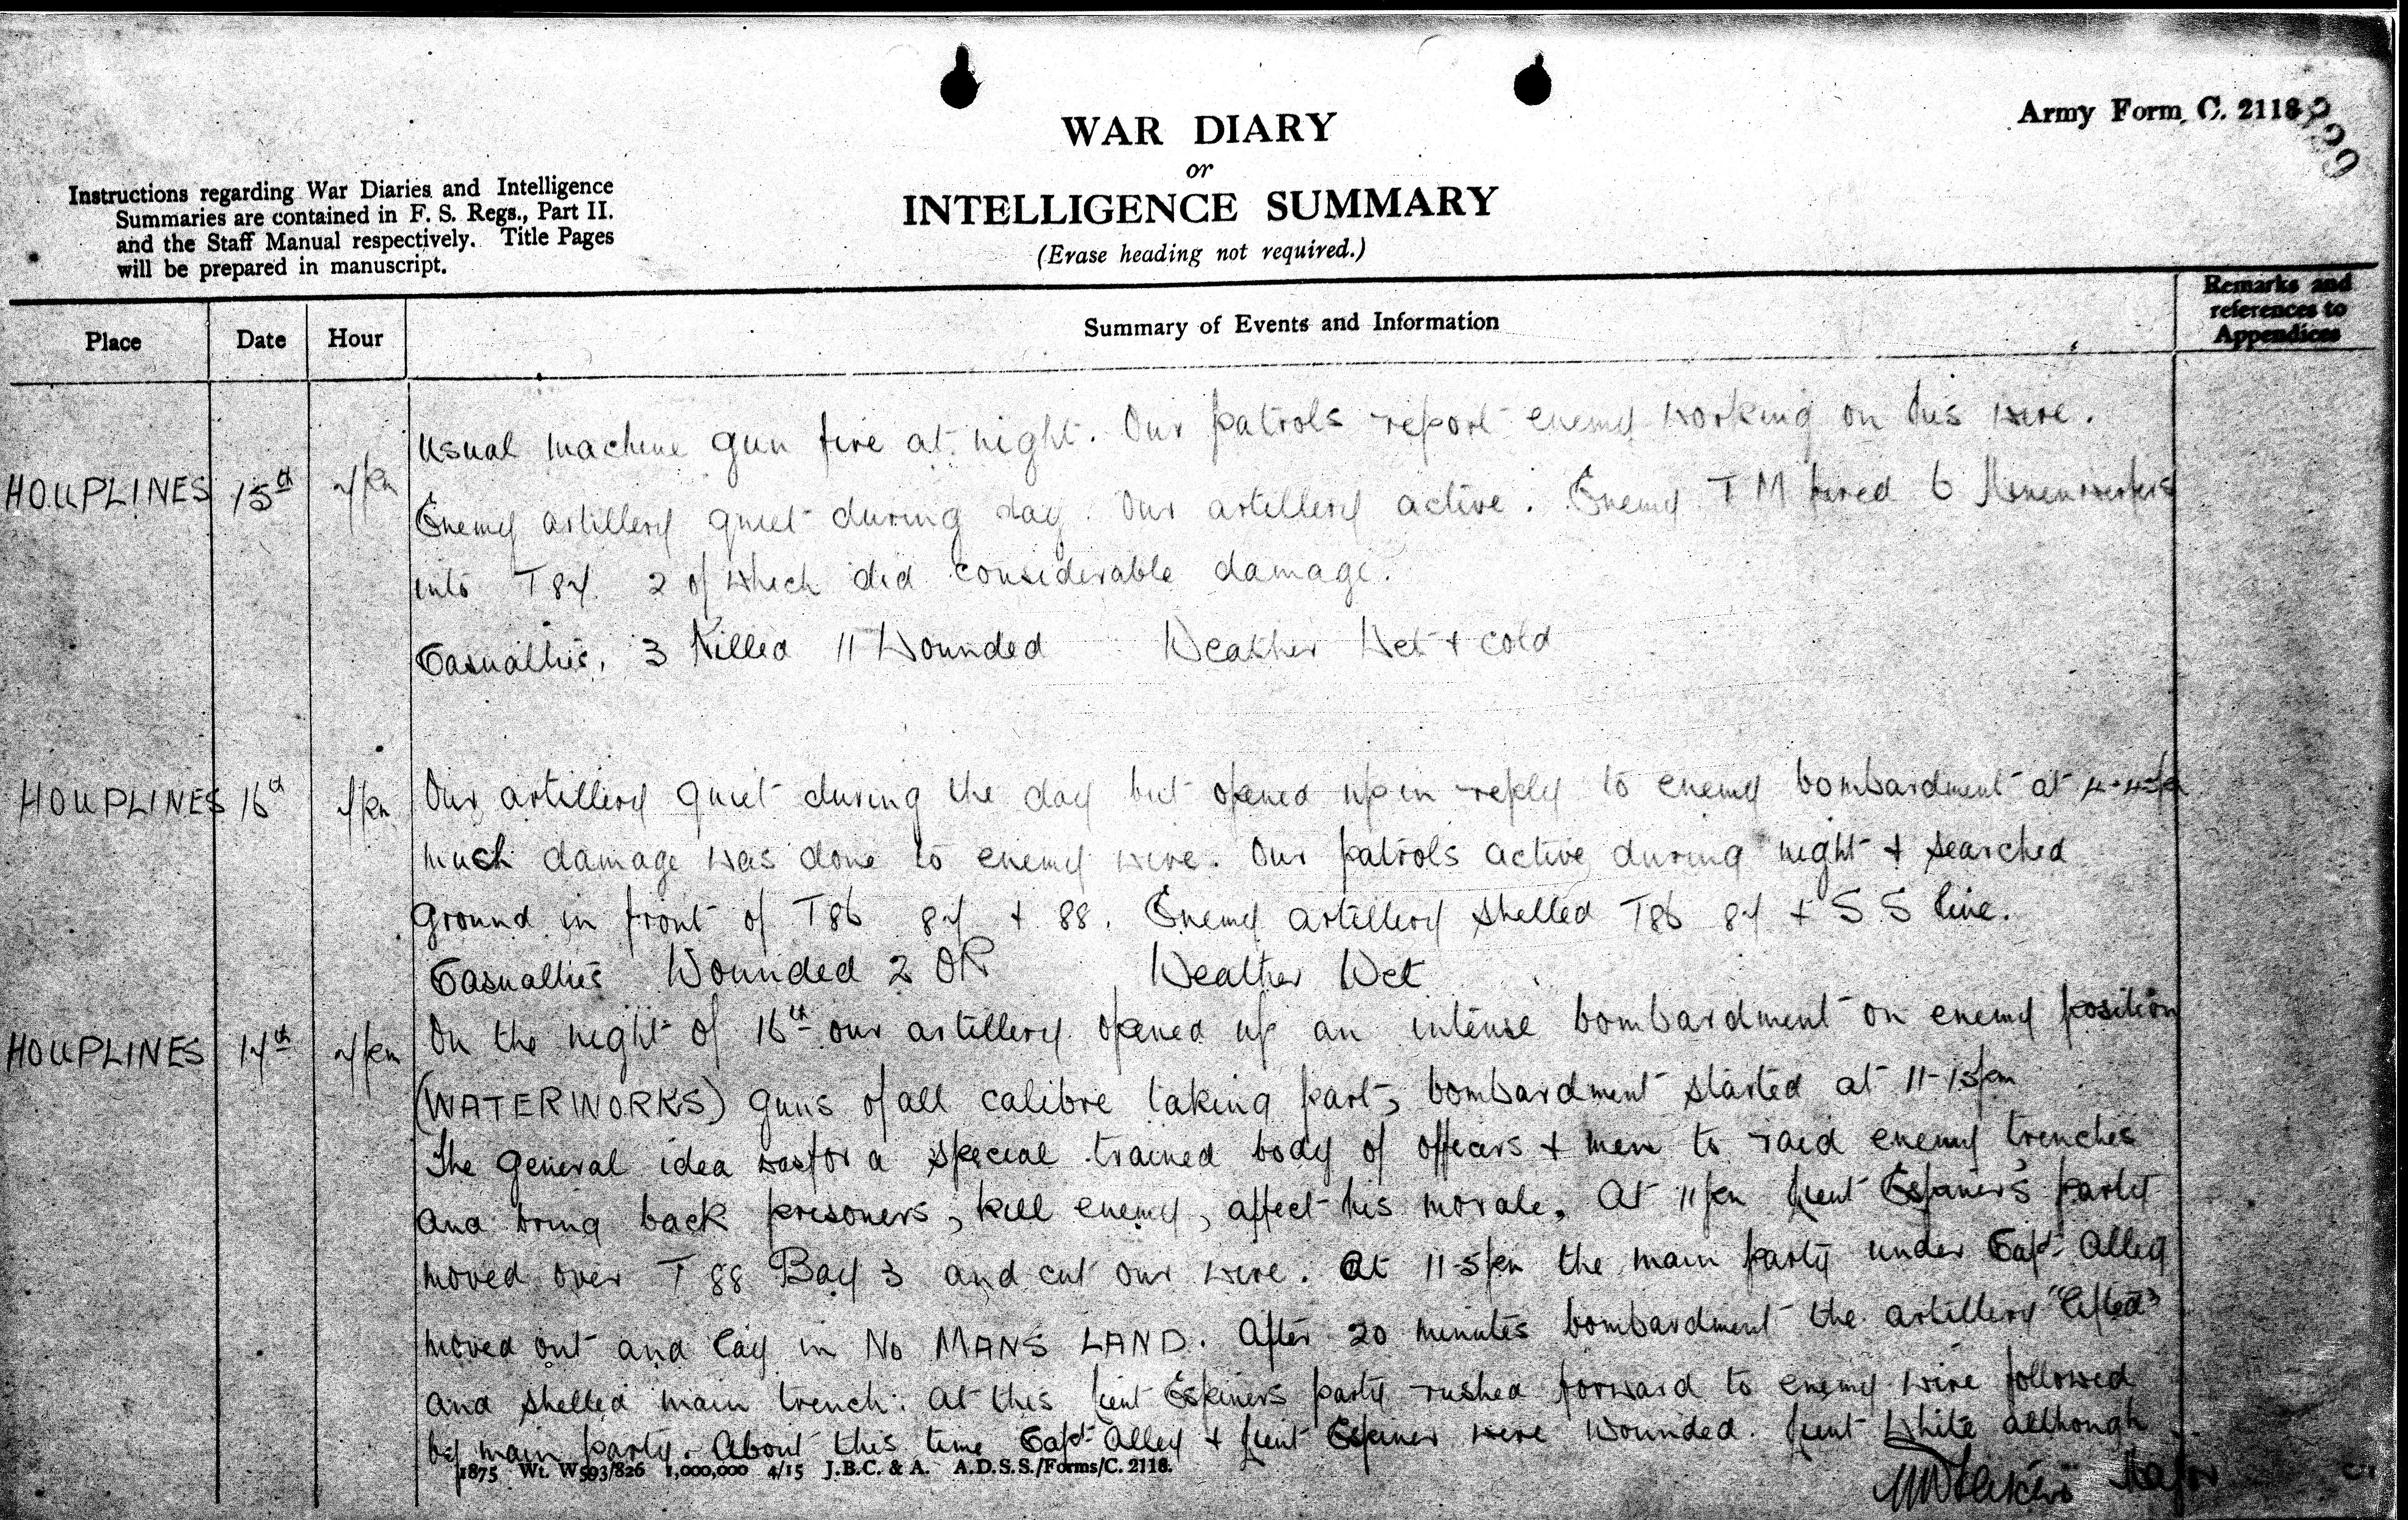 Army Form C. 2118
WAR DIARY
or
INTELLIGENCE SUMMARY
(Erase heading not required.)
Instructions regarding War Diaries and Intelligence
Summaries are contained in F. S. Regs., Part II.
and the Staff Manual respectively. Title Pages
will be prepared in manuscript.
Place Date Hour Summary of Events and Information Remarks and references to Appendices
Usual machine gun fire at night. Our patrols report enemy working on his wire.
HOUPLINES 15th 7pm Enemy artillery quiet during day. Our artillery active. Enemy TM fired 6
into T87. 2 of which did considerable damage.
Casualties, 3 Killed 11 Wounded Weather Wet + cold
HOUPLINES 16th 7pm Our artillery quiet during the day but opened up in reply to enemy bombardment at
much damage was done to enemy wire. Our patrols active during night + searched
ground in front of T86 87 + 88. Enemy artillery shelled T86 87 + S.S line.
Casualties Wounded 2 OR Weather Wet
HOUPLINES 17th 7pm On the night of 16th our artillery opened up an intense bombardment on enemy position
(WATERWORKS) guns of all calibre taking part, bombardment started at 11-15pm
The general idea was for a special trained body of officers + men to raid enemy trenches
and bring back prisoners, kill enemy, affect his morale. At 11pm Lieut Espiner's party
moved over T 88 Bay 3 and cut our wire. At 11-5pm the main party under Capt Alley
moved out and lay in NO MANS LAND. After 20 minutes bombardment the artillery "lifted"
and shelled main trench. At this Lieut Espiners party rushed forward to enemy wire followed
by main party. About this time Capt Alley + Lieut Espiner were wounded. Lieut White although
1875 Wt. W593/826 1,000,000 4/15 J.B.C. & A. A.D.S.S./Forms/C. 2118.
Major